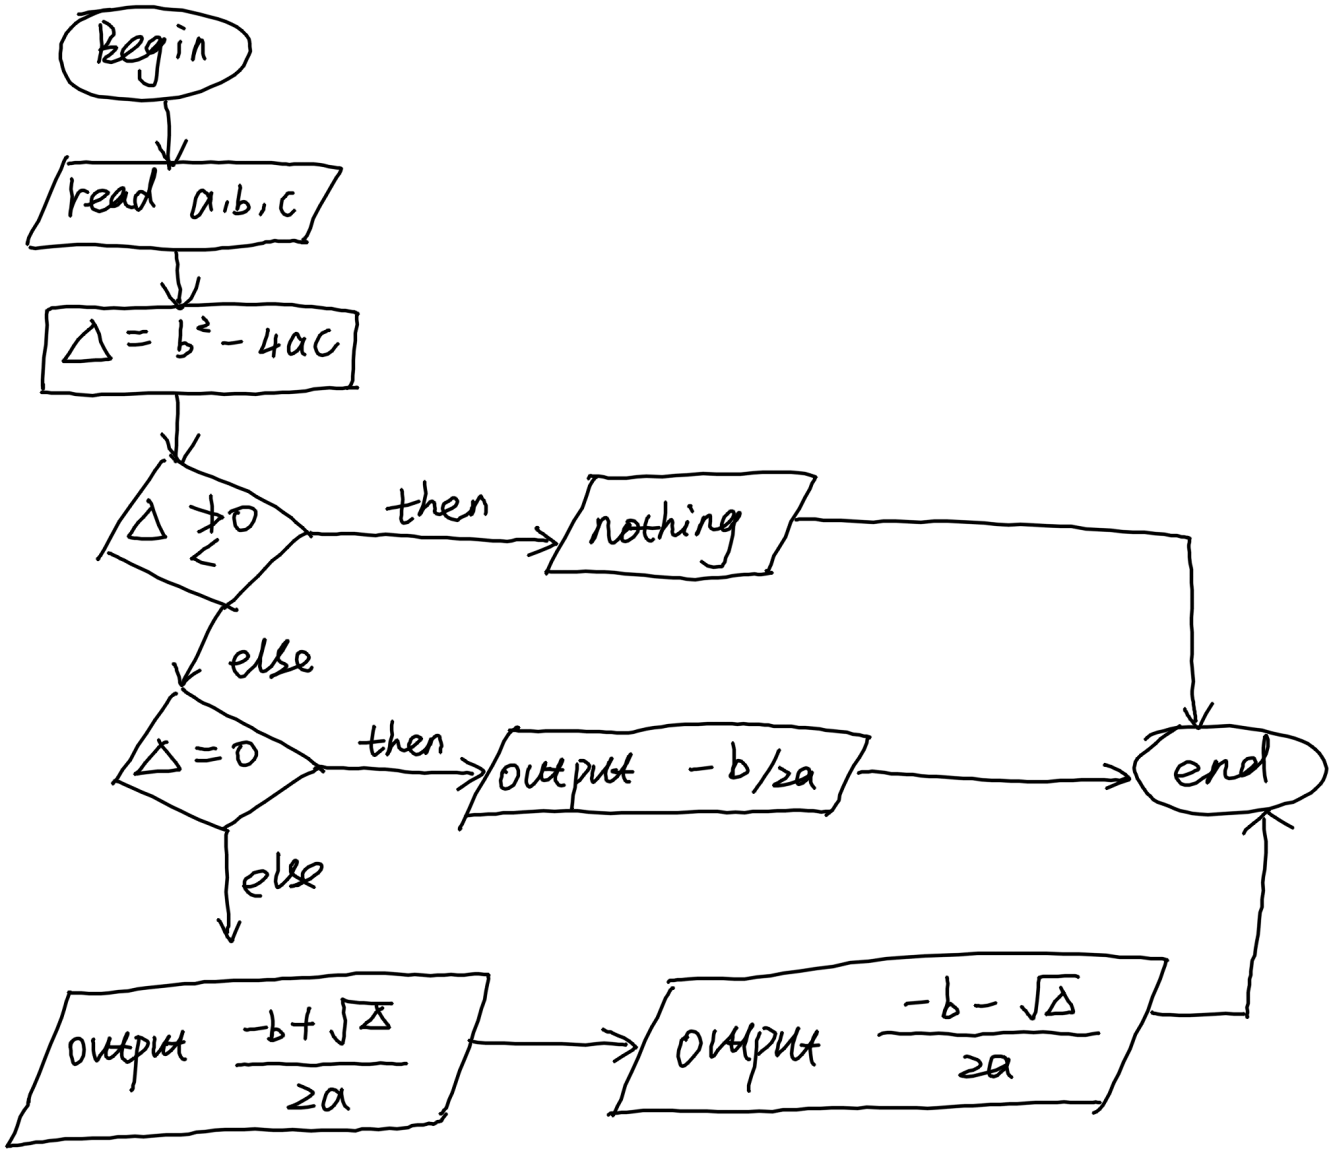 Begin
read a,b,c
Δ = b² - 4ac
Δ < 0
then
nothing
else
Δ = 0
then
output -b/2a
end
else
output (-b+√Δ)/2a
output (-b-√Δ)/2a